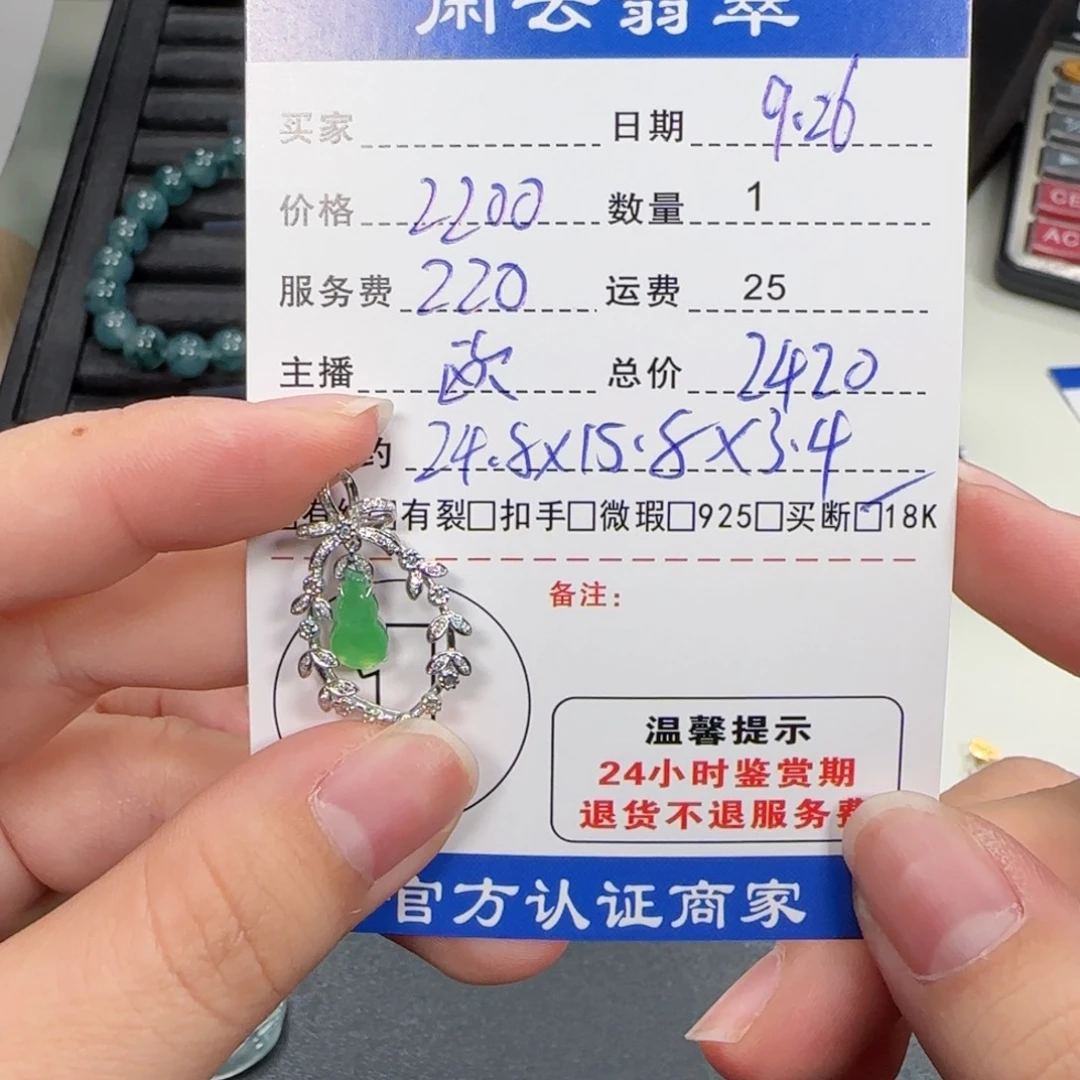 翡翠
买家 日期 9.26
价格 2200 数量 1
服务费 220 运费 25
主播 欧 总价 2420
约 24.8x15.8x3.4
□有裂□扣手□微瑕□925□买断☑18K
备注：
温馨提示
24小时鉴赏期
退货不退服务费
官方认证商家
CE
AC